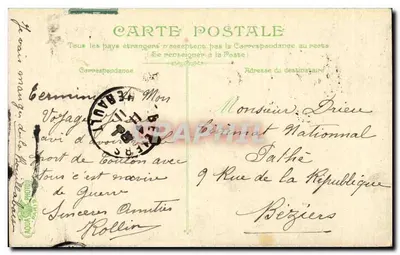 CARTE POSTALE
Tous les pays étrangers n'acceptent pas la Correspondance au recto
Se renseigner à la Poste
Correspondance
Adresse du destinataire
Je vais manger de la
Terminé Mon
Voyage
port de Toulon avec
tous c'est navire
de guerre
Sinceres Amitiés
Rollin
BEZIERS
HERAULT
Monsieur Prieu
Cinémat Nationnal
Pathé
9 Rue de la République
Béziers